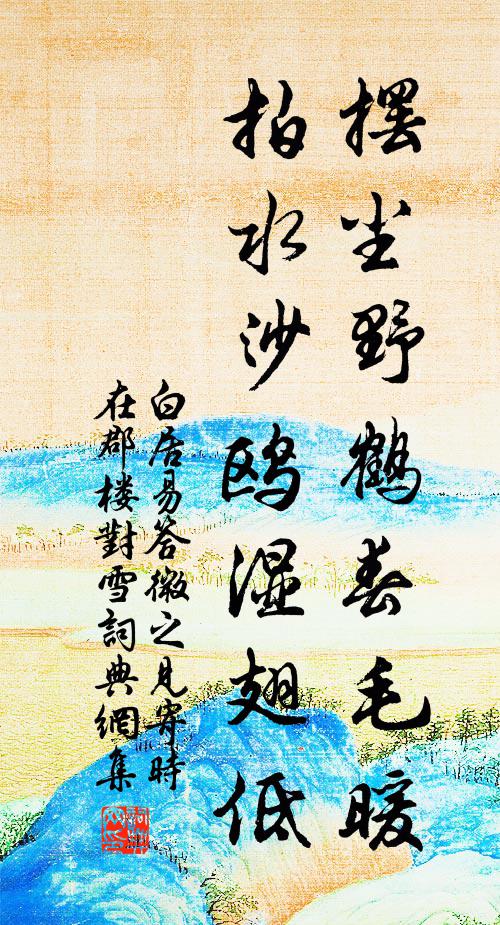 摆尘野鹤春毛暖
拍水沙鸥湿翅低
白居易答微之见寄時
在郡楼對雪詞典網集